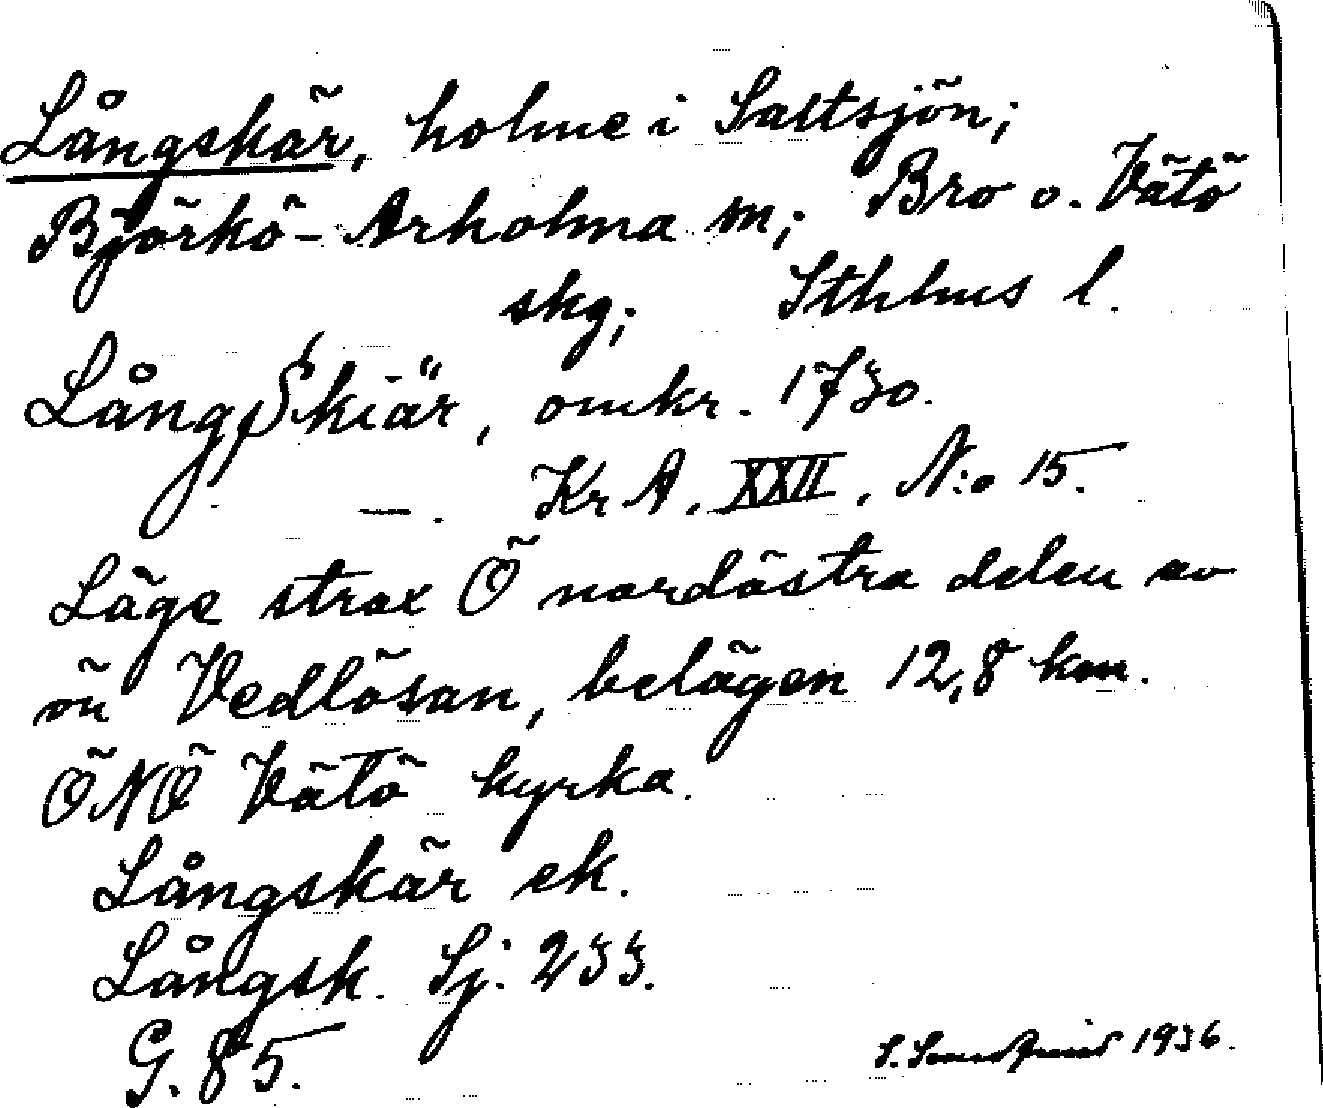 Långskär, holme i Saltsjön;
Björkö-Arholma sn; Bro o. Vätö
skg; Sthlms l.
LångSkiär, omkr. 1730.
—. Kr A. XXII, N:o 15.
Läge strax Ö nordöstra delen av
ön Vedlösan, belägen 12,8 km.
ÖNÖ Vätö kyrka.
Långskär ek.
Långsk. Sj. 233.
G. 85.
S. 1936.